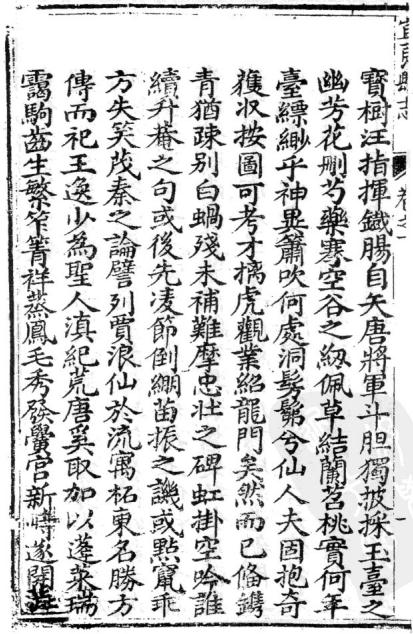 寶樹汪指揮鐵腸自矢唐將軍斗胆獨披採玉臺之
幽芳花刪芍藥搴空谷之紉佩草結蘭苕桃實何年
臺縹緲乎神異簫吹何處洞髣髴兮仙人夫固抱奇
獲収按圖可考才摛虎觀業紹龍門矣然而已俻鐫
青猶疎别白蝸殘未補難摩忠壯之碑虹掛空吟誰
續升菴之句或後先凌節倒綳苗振之譏或點竄乖
方失笑茂秦之論譬列賈浪仙於流寓柘東名勝方
傳而祀王逸少為聖人滇紀荒唐奚取加以蓬萊瑞
靄駒齒生繁笮菁祥蒸鳳毛秀發黌宫新
遂開
志
卷之一